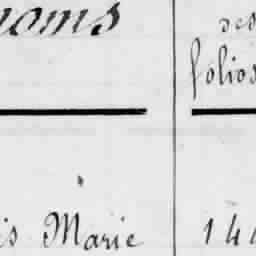 noms
des
folios
is Marie 144